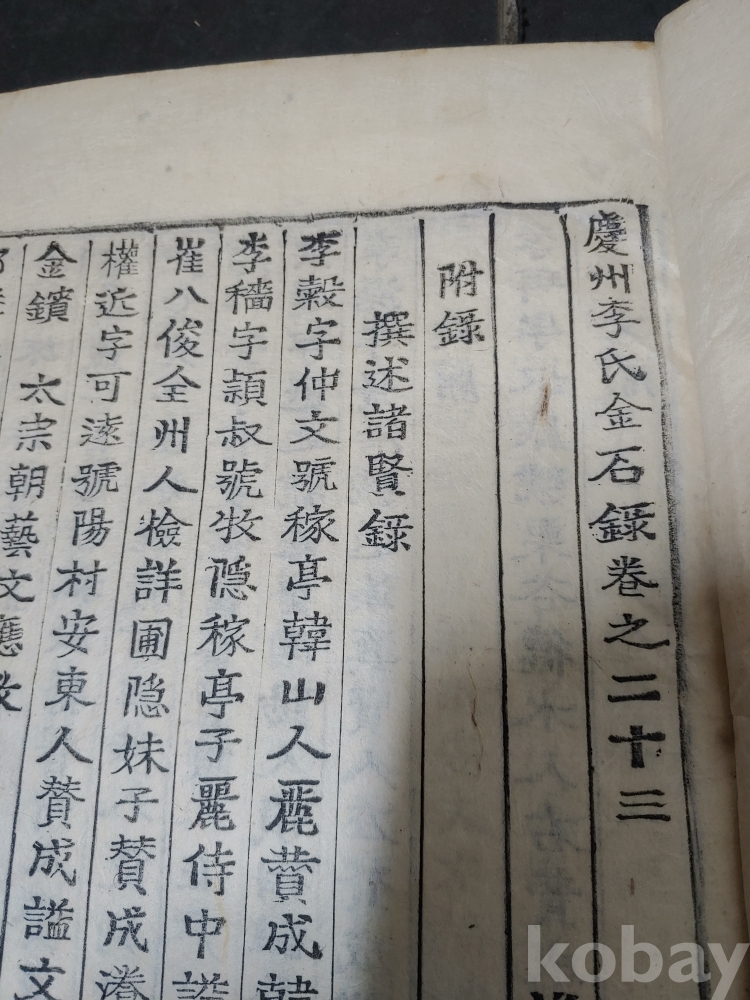 慶州李氏金石錄卷之二十三
附錄
撰述諸賢錄
李穀字仲文號稼亭韓山人麗贊成韓
李穡字穎叔號牧隱稼亭子麗侍中諡
崔八俊全州人檢詳圃隱妹子贊成
權近字可遠號陽村安東人贊成諡文
金鑌 太宗朝藝文應敎
kobay